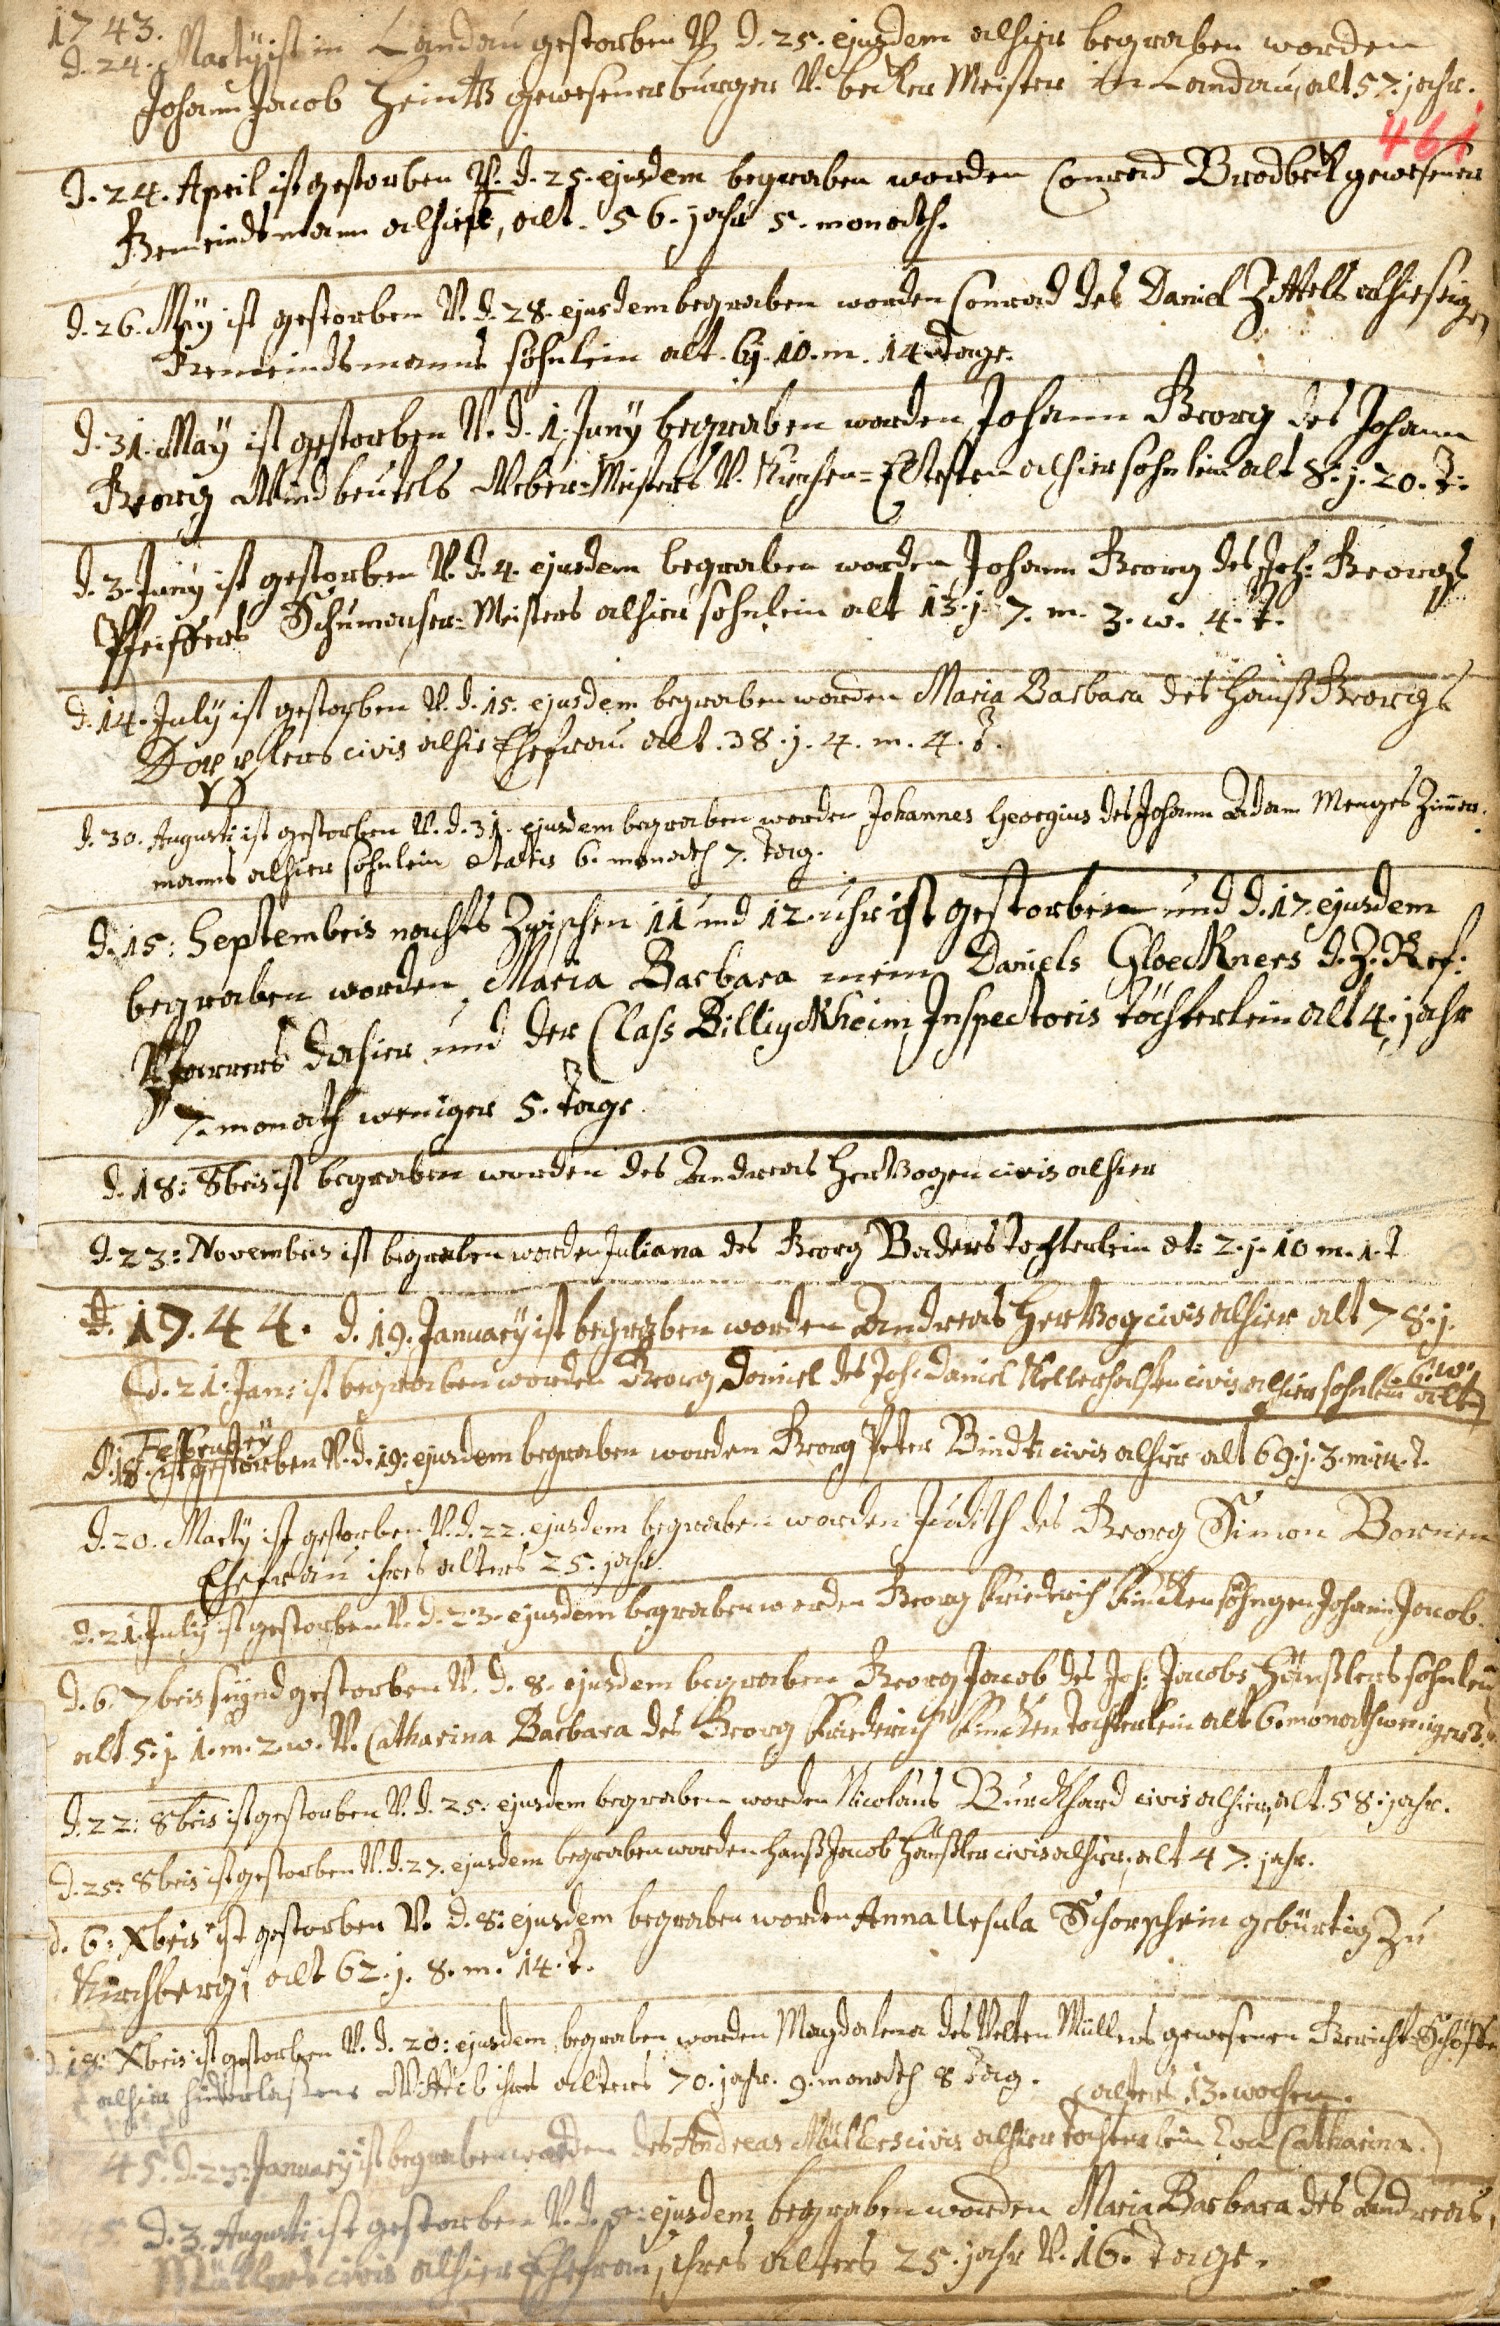 1743.
d. 24. Martÿ ist in Landau gestorben V. d. 25. ejusdem alhier begraben worden
Johann Jacob Heintz gewesener burger V. becker Meister in Landau, alt 57. jahr.
461
d. 24. April ist gestorben V. d. 25. ejusdem begraben worden Conrad Brodbeck gewesener
Gemeindsmann alhier, alt. 56. jahr 5. monath.
d. 26. Maÿ ist gestorben V. d. 28. ejusdem begraben worden Conrad des Daniel Zittels alhiesigen
Gemeindsmanns söhnlein alt. 6j. 10. m. 14. tage.
d. 31. Maÿ ist gestorben V. d. 1. Junÿ begraben worden Johann Georg des Johann
Georg Windbeutels Weber-Meisters V. Kirchen-Eltesten alhier söhnlein alt 8. j. 20. t.
d. 3. Junÿ ist gestorben V. d. 4. ejusdem begraben worden Johann Georg des Joh: Georgs
Pfeiffers Schumacher-Meisters alhier söhnlein alt 13. j. 7. m. 3. w. 4. t.
d. 14. Julÿ ist gestorben V. d. 15. ejusdem begraben worden Maria Barbara des Hanß Georgs
Dopplers civis alhie Ehefrau alt. 38. j. 4. m. 4. t.
d. 30. Augusti ist gestorben V. d. 31. ejusdem begraben worden Johannes Georgius des Johann Adam Menges Zimmer-
manns alhier söhnlein etatis 6. monath 7. tag.
d. 15: Septembris nachts Zwischen 11 und 12. uhr ist gestorben und d. 17. ejusdem
begraben worden Maria Barbara mein Daniels Gloeckners d. Z. Ref:
Pfarrers dahier und der Class Billigckheim Inspectoris töchterlein alt 4. jahr
7. monath weniger 5. tage
d. 18: 8bris ist begraben worden des Andreas Hertzogen civis alhier
d. 23: Novembris ist begraben worden Juliana des Georg Baders töchterlein et: 2. j. 10 m. 1. t
1744. d. 19. Januarÿ ist begraben worden Andreas Hertzog civis alhier alt 78. j.
d. 21. Jan: ist begraben worden Georg Daniel des Joh: Daniel Kellerhalsen civis alhier söhnlein alt 6. w.
Februarÿ
d. 18. ist gestorben V. d. 19: ejusdem begraben worden Georg Peter Bindt civis alhier alt 69. j. 3. m. 14. t.
d. 20. Martÿ ist gestorben V. d. 22. ejusdem begraben worden Judith des Georg Simon Bornen
Ehefrau ihres alters 25. jahr.
d. 21. Julÿ ist gestorben V. d. 23. ejusdem begraben worden Georg Friederich Fincken söhngen Johann Jacob.
d. 6. 7bris seynd gestorben V. d. 8. ejusdem begraben Georg Jacob des Joh: Jacobs Häußlers söhnlein
alt 5. j. 1. m. 2. w. V. Catharina Barbara des Georg Friederich Fincken töchterlein alt 6. monath weniger 3.
d. 22: 8bris ist gestorben V. d. 25. ejusdem begraben worden Nicolaus Burckhard civis alhier, alt. 58. jahr.
d. 25: 8bris ist gestorben V. d. 27. ejusdem begraben worden Hanß Jacob Häußler civis alhier, alt 47. jahr.
d. 6: Xbris ist gestorben V. d. 8: ejusdem begraben worden Anna Ursula Schorphein gebürtig Zu
Kirchberg, alt 62. j. 8. m. 14. t.
d. 18: Xbris ist gestorben V. d. 20: ejusdem begraben worden Magdalena des Velten Müllers gewesenen Gericht-Schöffen
alhier hinterlaßene Wittib ihres alters 70. jahr. 9. monath 8 tag.
alters 13. wochen.
45. d. 23. Januarÿ ist begraben worden des Andreas Müllers civis alhier töchterlein Eva Catharina.
45. d. 3. Augusti ist gestorben V. d. 5. ejusdem begraben worden Maria Barbara des Andreas
Müllers civis alhier Ehefrau, ihres alters 25. jahr V. 16. tage.